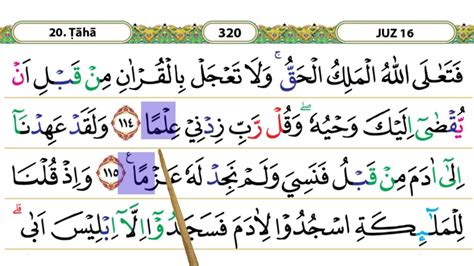 20. Ṭāhā 320 JUZ 16
فَتَعٰلَى اللّٰهُ الْمَلِكُ الْحَقُّۚ وَلَا تَعْجَلْ بِالْقُرْاٰنِ مِنْ قَبْلِ اَنْ
يُّقْضٰٓى اِلَيْكَ وَحْيُهٗ ۖ وَقُلْ رَّبِّ زِدْنِيْ عِلْمًا ١١٤ وَلَقَدْ عَهِدْنَآ
اِلٰٓى اٰدَمَ مِنْ قَبْلُ فَنَسِيَ وَلَمْ نَجِدْ لَهٗ عَزْمًا ࣖ ١١٥ وَاِذْ قُلْنَا
لِلْمَلٰۤىِٕكَةِ اسْجُدُوْا لِاٰدَمَ فَسَجَدُوْٓا اِلَّآ اِبْلِيْسَ اَبٰى ۗ